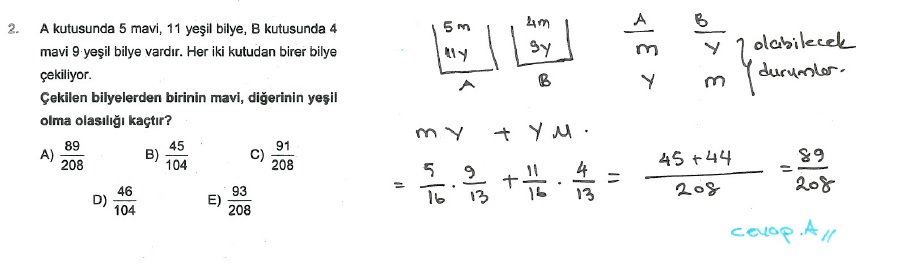 2. A kutusunda 5 mavi, 11 yeşil bilye, B kutusunda 4
mavi 9 yeşil bilye vardır. Her iki kutudan birer bilye
çekiliyor.
Çekilen bilyelerden birinin mavi, diğerinin yeşil
olma olasılığı kaçtır?
A) 89/208 B) 45/104 C) 91/208
D) 46/104 E) 93/208
5m 4m
11y 9y
A B
A B
m y
y m
olabilecek
durumlar.
m y + y M.
= 5/16 . 9/13 + 11/16 . 4/13 = 45+44/208 = 89/208
cevap.A//